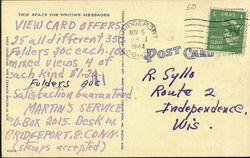 THIS SPACE FOR WRITING MESSAGES
VIEW CARD OFFERS
25 all different 35¢
Folders 90¢ each. 100
mixed views 4 of
each kind $1.
Folders 90¢
Satisfaction guaranteed.
MARTIN'S SERVICE
Box 2015. Desk
BRIDGEPORT, 8. CONN.
(stamps accepted)
50
BRIDGEPORT
NOV 9
1944
CONN.
POST CARD
R. Sylla
Route 2
Independence,
Wis.